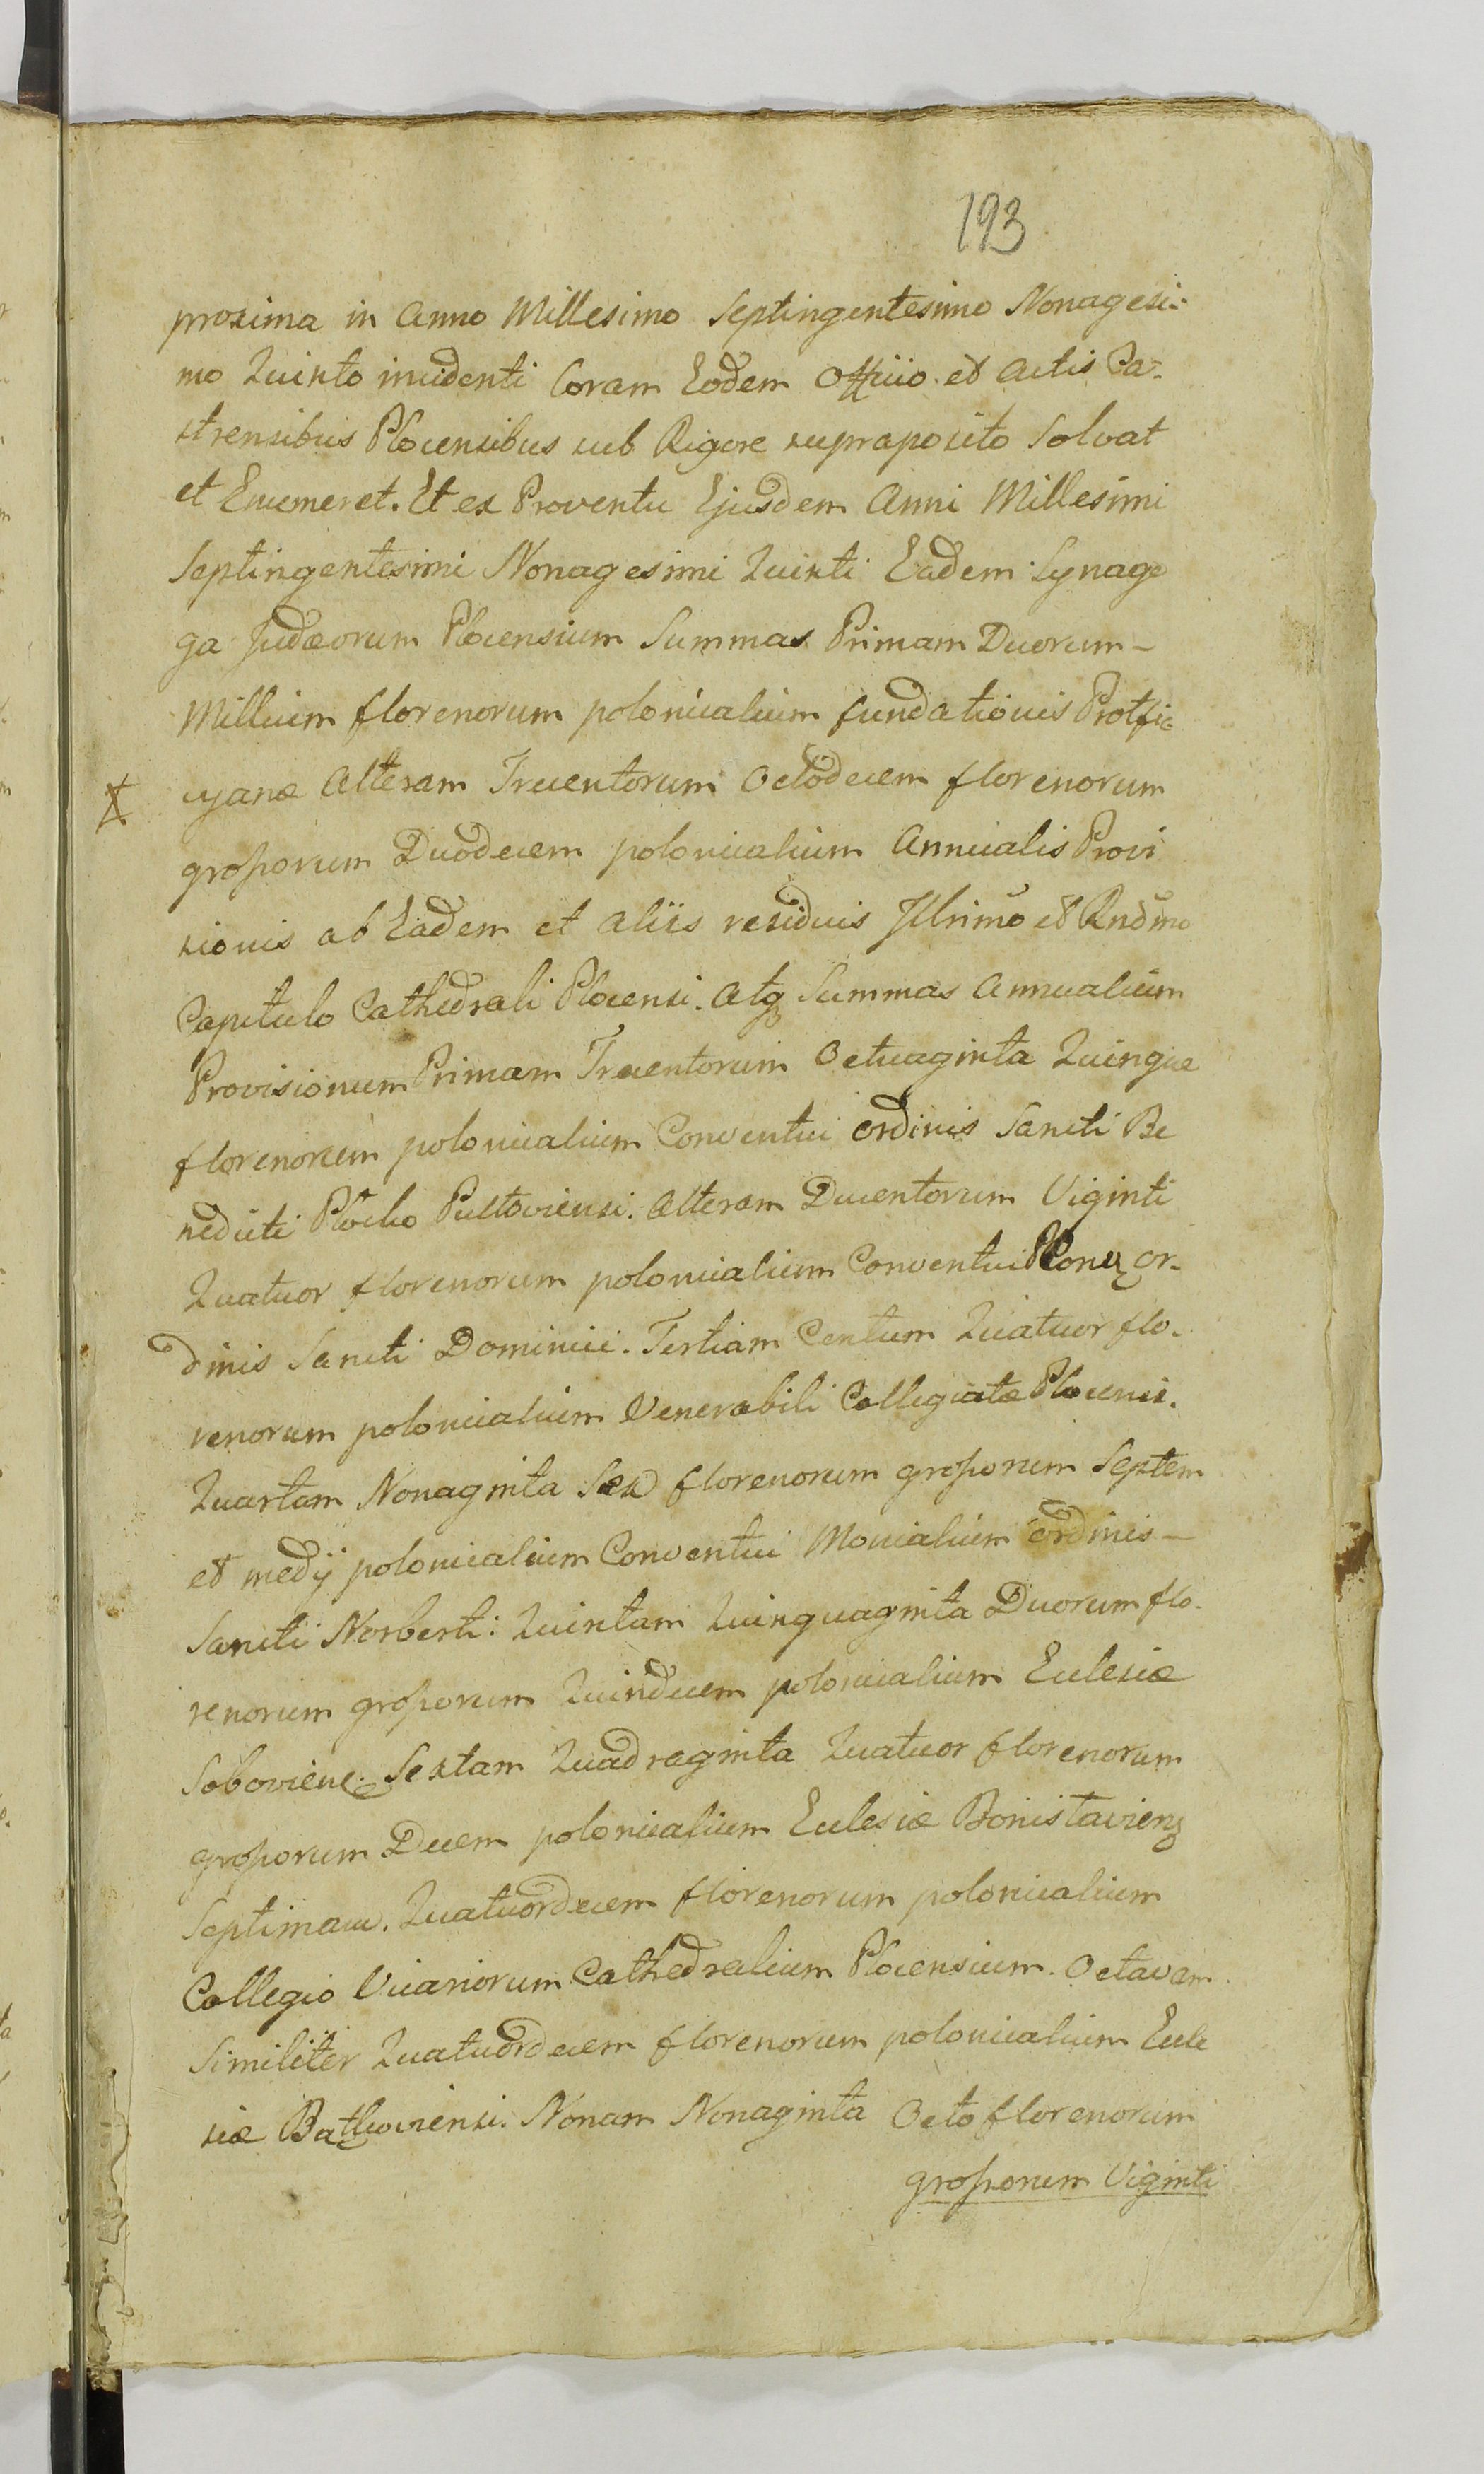 193
proxima in Anno Millesimo Septingentesimo Nonagesi-
mo Quinto incidenti Coram Eodem Officio et Actis Ca-
strensibus Plocensibus sub Rigore supraposito Solvat
et Enumeret. Et ex Proventu Ejusdem Anni Millesimi
Septingentesimi Nonagesimi Quinti Eadem Synago
ga Judæorum Plocensium Summas Primam Duorum-
Millium florenorum polonicalium fundationis
cyanæ Alteram Trecentorum Octodecem florenorum
grossorum Duodecem polonicalium Annualis Provi
sionis ab Eadem et aliis residuis Illrimo et Rndmo
Capitulo Cathedrali Plocensi. Atq Summas Annualium
Provisionum Primam Trecentorum Octuaginta Quinque
florenorum polonicalium Conventui ordinis Sancti Be
nedicti Plocko Pultoviensi. Alteram Ducentorum Viginti
Quatuor florenorum polonicalium Conventui or-
dinis Sancti Dominici. Tertiam Centum Quatuor flo-
renorum polonicalium Venerabili Collegiatæ Plocensi.
Quartam Nonaginta Sex florenorum grossorum Septem
et medij polonicalium Conventui Monialium ordinis-
Sancti Norberti: Quintam Quinquaginta Duorum flo-
renorum grossorum Quindecem polonicalium Eclesiæ
Sextam Quadraginta Quatuor florenorum
grossorum Decem polonicalium Eclesiæ
Septimam. Quatuordecem florenorum polonicalium
Collegio Vicariorum Cathedralium Plocensium. Octavam
Similiter Quatuordecem florenorum polonicalium Ecle
siæ Nonam Nonaginta Octo florenorum
grossorum Viginti